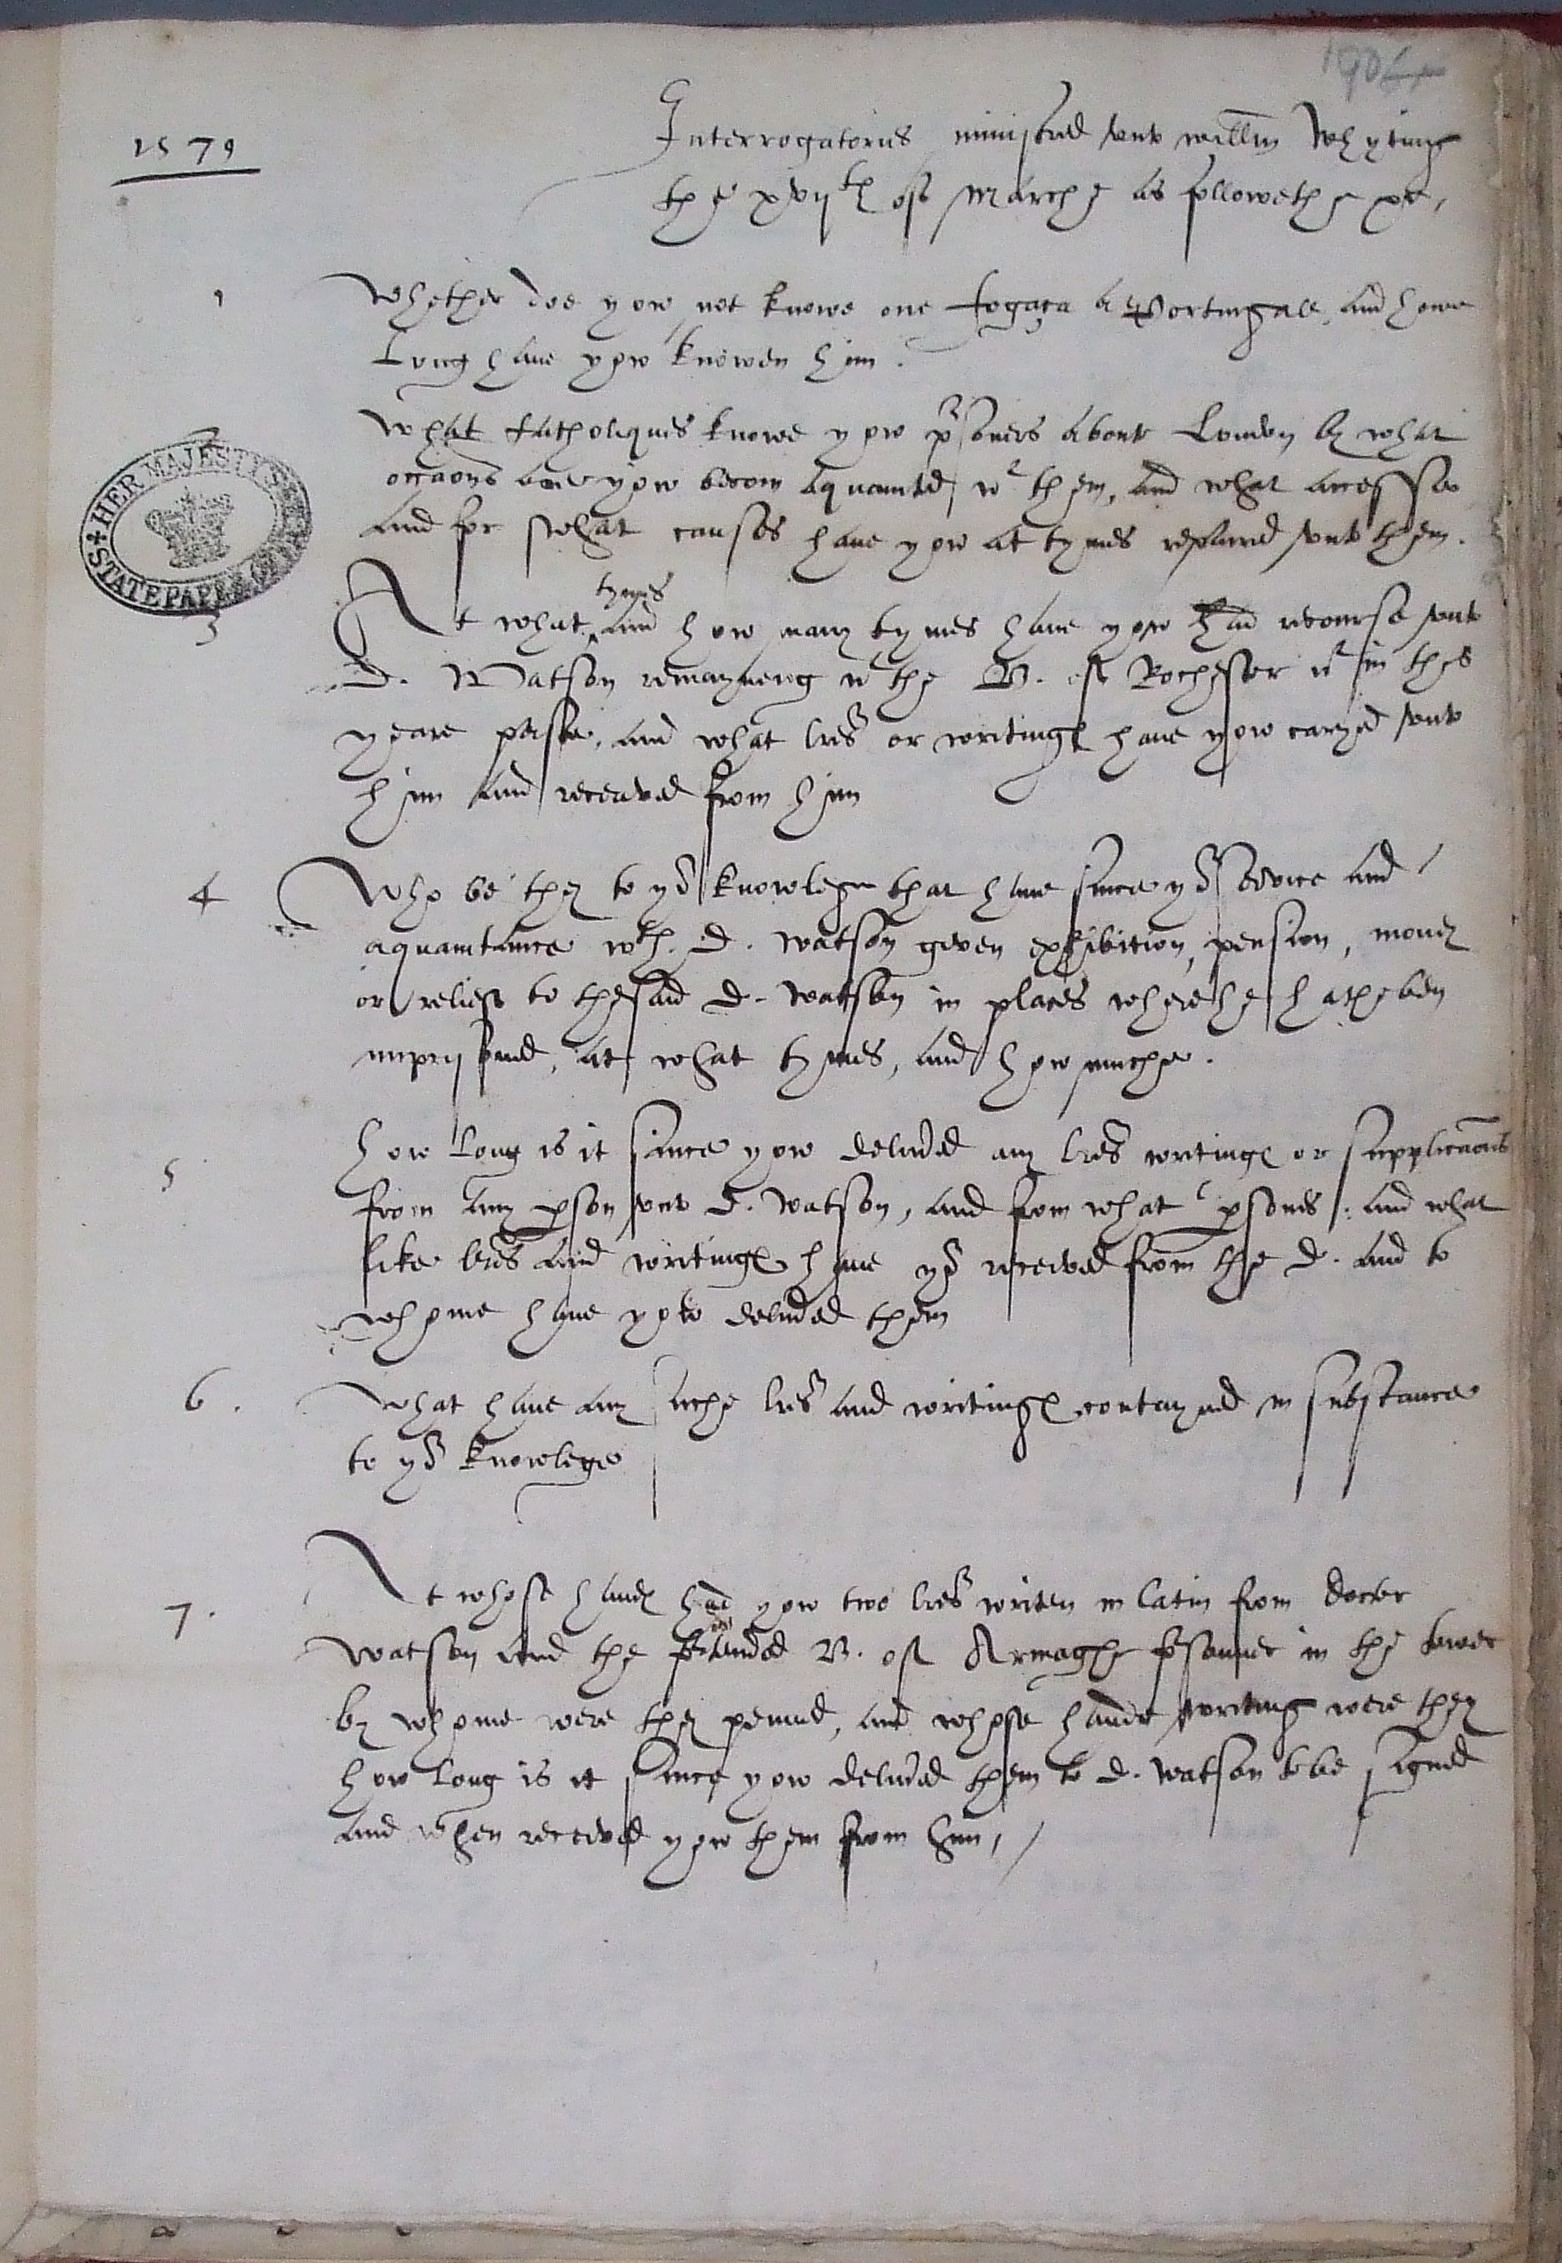 1579
Interrogatories ministred unto Willm Whyting
the xvijth of Marche as followethe
1 Whether doe yow not knowe one fogaça a Portingale, and howe
Long have yow knowen him.
2 What Catholiques knowe yow prsoners about London by what
occaons are yow becom aquainted wt them, and what accesse
and for what causes have yow at tymes repaired unto them.
3 At what tymes and how many tymes have yow had recourse unto
D. Watson remayneng wt the B. of Rochester wt in this
yeare paste, and what lres or writings have yow caryed unto
him and receaved from him
4 Who be they to yor knowlege that have since yor service and
aquaintance wth. D. Watson geven exhibition, pension, money
or relief to the said D. Watson in places where he hathe ben
imprysoned, at what tymes, and how muche.
5 how long is it since yow delivred any lres writings or supplicaons
from any pson unto D. Watson, and from what psones: and what
like lres and writings have yow received from the D. and to
whome have yow delivred them
6. What have any suche lres and writings contayned in substance
to yor knowlege
7. At whose hands had yow two lres writen in latin from doctor
Watson and the pretended B. of Armaghe prsonner in the tower
by whome were they penned, and whose hande writing were they
how long is it since yow delivred them to D. Watson to be signed
and when received yow them from him,
HER MAJESTY'S STATE PAPER OFFICE